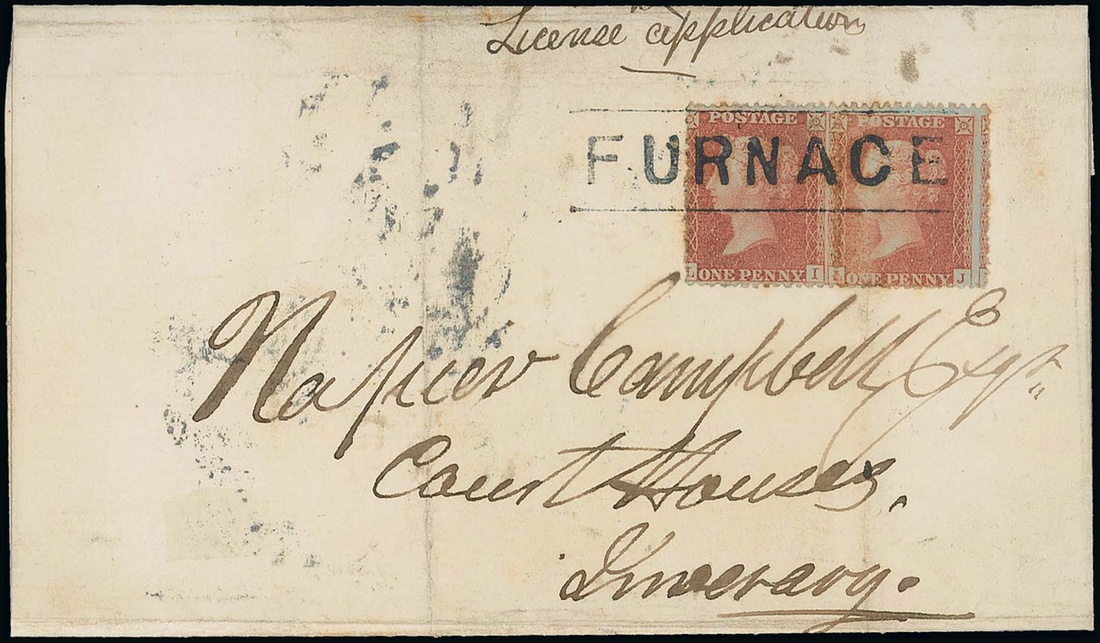 License application
POSTAGE POSTAGE
FURNACE
ONE PENNY I ONE PENNY J
Napier Campbell Esqr
Court Houses,
Inveraray.